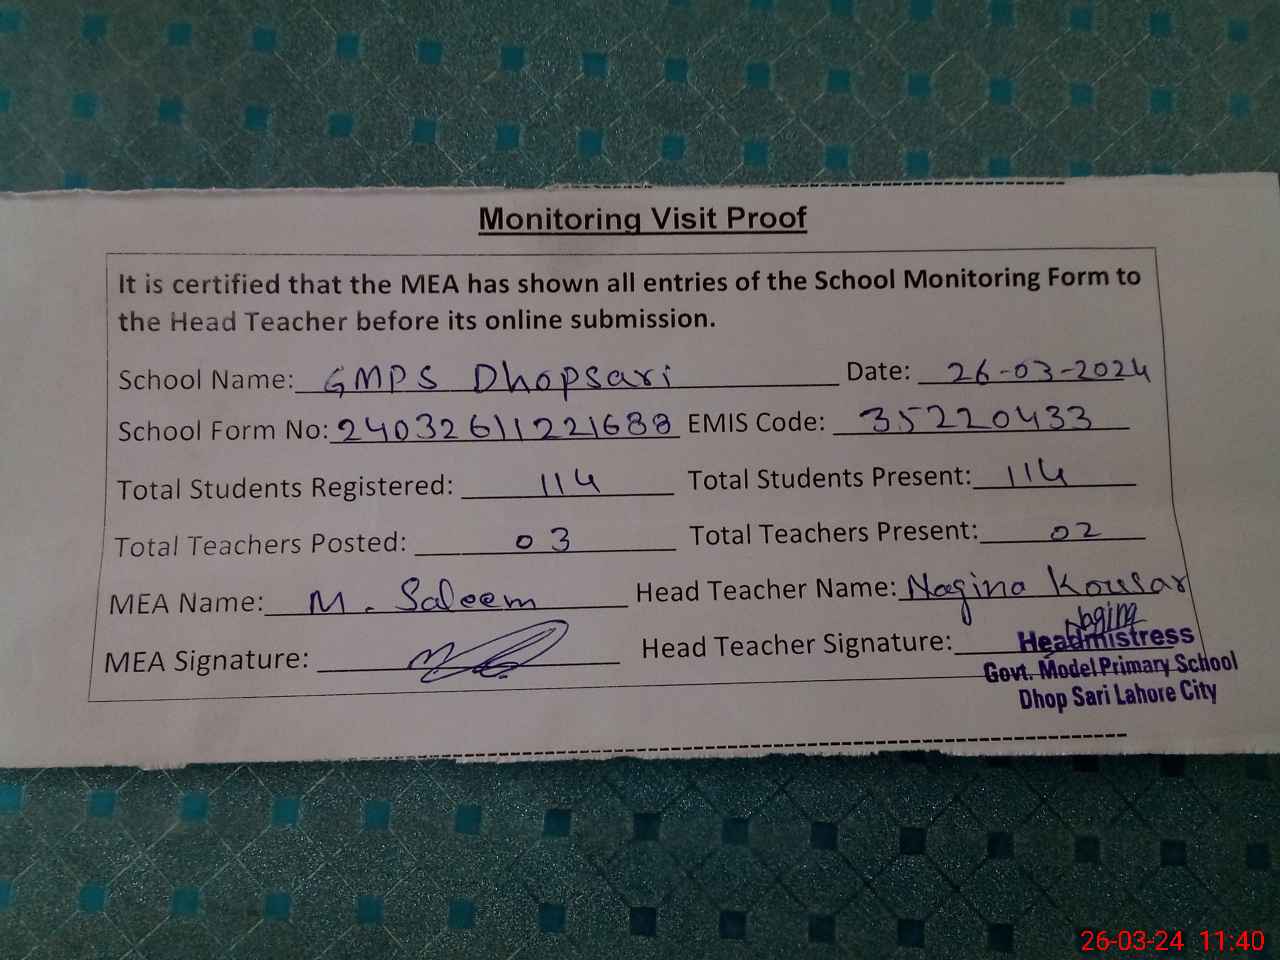 Monitoring Visit Proof
It is certified that the MEA has shown all entries of the School Monitoring Form to
the Head Teacher before its online submission.
School Name: GMPS Dhopsari Date: 26-03-2024
School Form No: 24032611221688 EMIS Code: 35220433
Total Students Registered: 114 Total Students Present: 114
Total Teachers Posted: 03 Total Teachers Present: 02
MEA Name: M. Saleem Head Teacher Name: Nagina Kousar
MEA Signature: Head Teacher Signature: Nagina
Headmistress
Govt. Model Primary School
Dhop Sari Lahore City
26-03-24 11:40